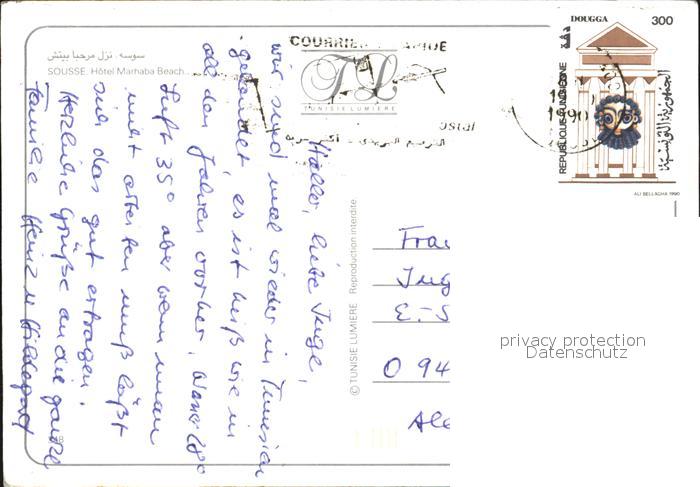 سوسه . نزل مرحبا بيتش
SOUSSE. Hôtel Marhaba Beach
COURRIER
TL
TUNISIE LUMIERE
DOUGGA
دقة
300
REPUBLIQUE TUNISIENNE
الجمهورية التونسية
ALI BELLAGHA 1990
1990
Hallo, liebe Inge,
wir sind mal wieder in Tunesien
gelandet, es ist heiß wie in
all den Jahren vorher. Wasser 28°
Luft 35° aber wenn man
nicht arbeiten muß läßt
sich das gut ertragen.
Herzliche Grüße an die ganze
Familie Heinz u Hildegard
© TUNISIE LUMIERE Reproduction interdite
Frau
Ing
E. S
O 94
privacy protection
Datenschutz